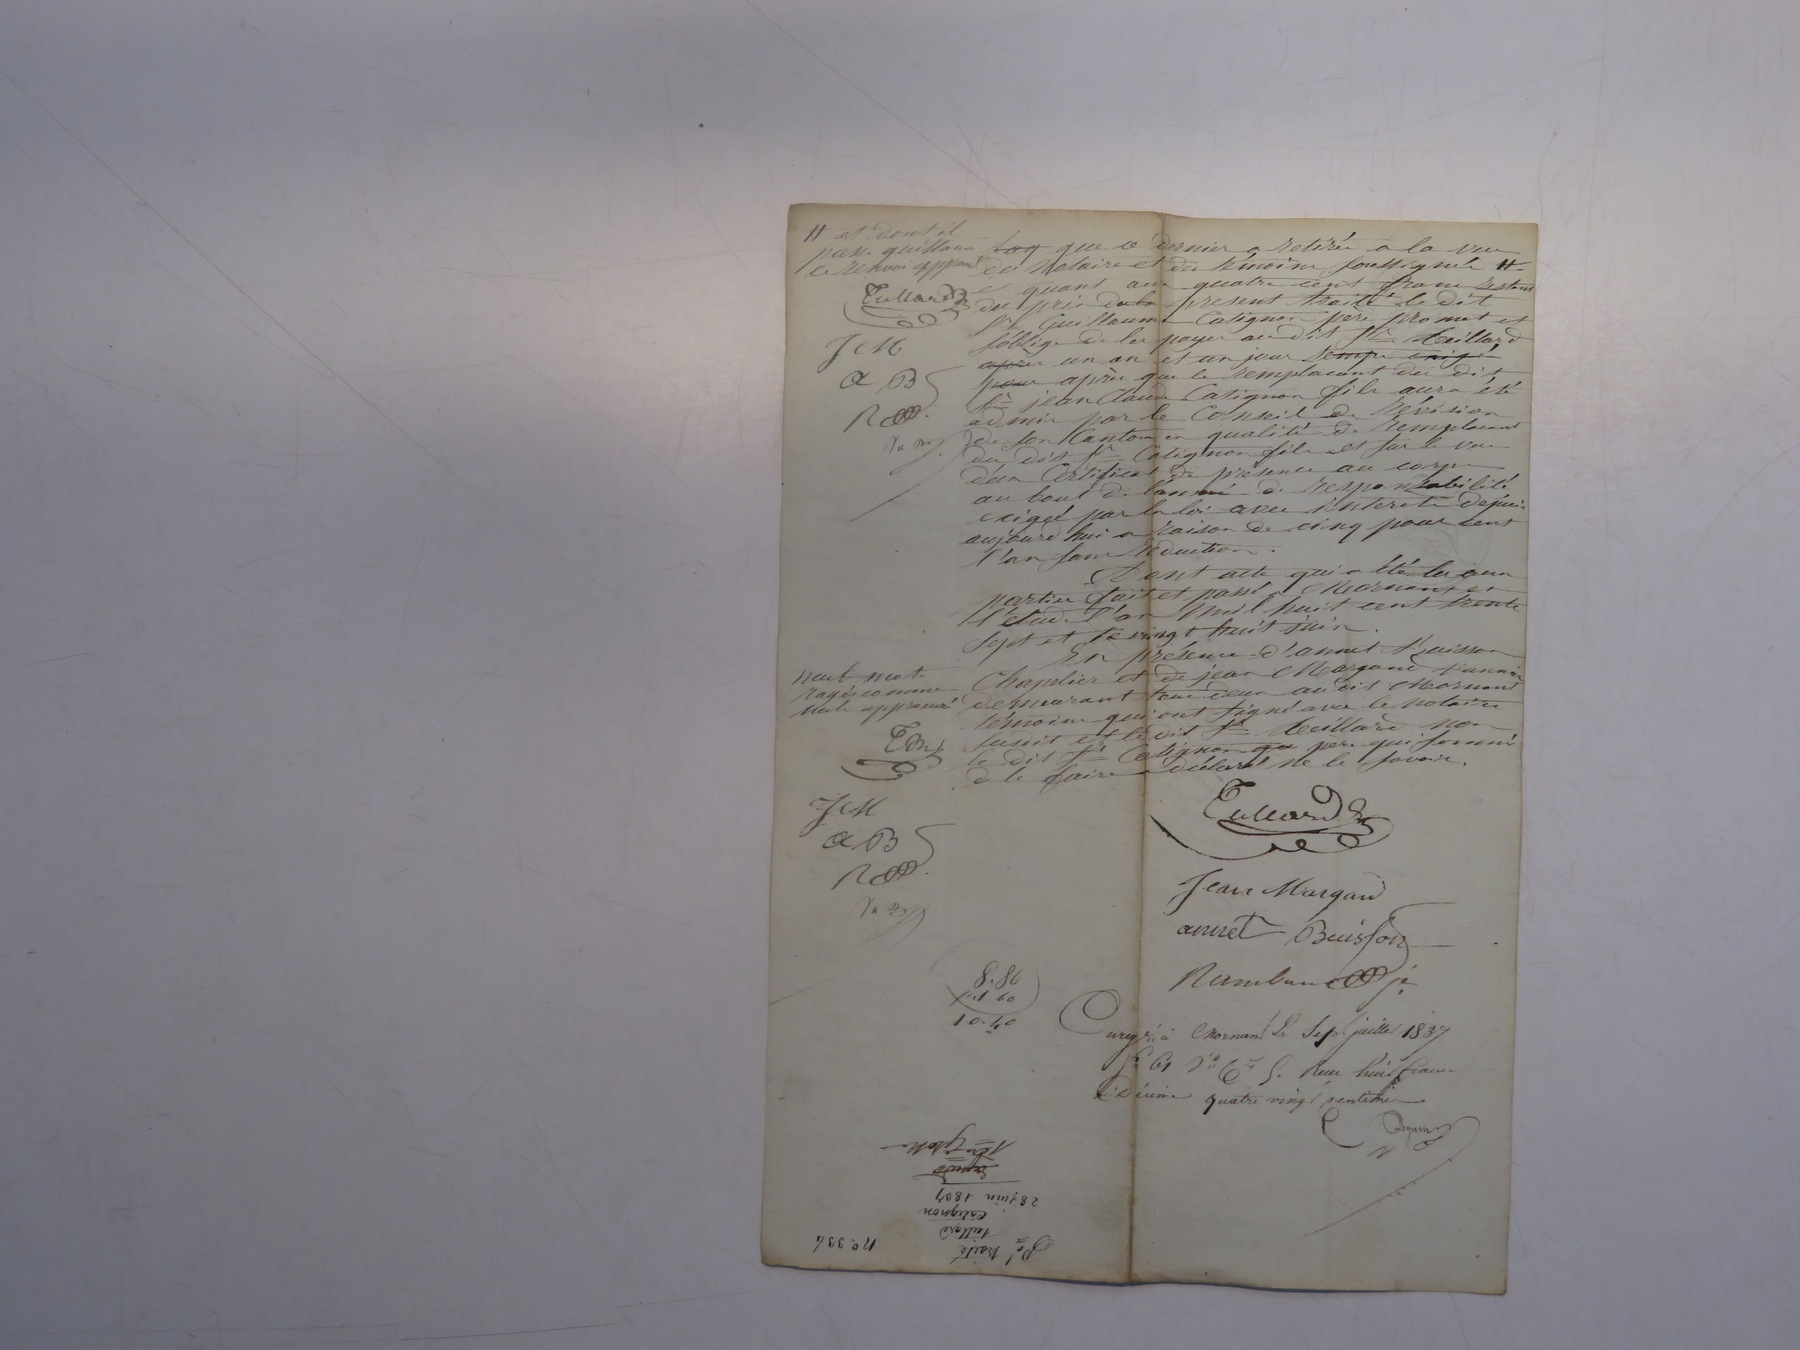 H et dont il
passe quittance
ce renvoi approuvé
Teillard
J M
A B
que ce dernier a retirée a la vue
des Notaire et des témoins soussignés H
et quant aux quatre cent francs restant
du prix du présent traité le dit
Sr Guillaume Catignon père promet et
s'oblige de les payer au dit Sr Teillard
après un an et un jour
pour après que le remplacant du dit
Sr jean Claude Catignon fils aura été
admis par le Conseil de Révision
de son Canton en qualité de remplacant
du dit Sr Catignon fils et sur le vu
d'un Certificat de présence au corps
au bout de l'année de responsabilité
exigée par la loi avec intérêts depuis
aujourd'hui a raison de cinq pour cent
l'an sans réduction.
Dont acte qui a été lu aux
parties fait et passé a Mornant en
l'étude l'an mil huit cent trente
sept et le vingt huit juin.
En présence d'annet Buisson
Chapelier et de jean Margand
demeurant tous deux au dit Mornant
témoins qui ont signé avec le notaire
susdit et le dit Sr Teillard non
le dit Sr Catignon père qui sommé
de le faire a déclaré ne le savoir.
neuf mots
rayés comme
nuls approuvé
J M
A B
Teillard
Jean Margand
annet Buisson
8.80
1 60
10.40
Enregré à Mornant le sept juillet 1837
fo 61 Ro Ce 5. Reçu huit francs
Décime quatre vingt centimes
28 juin 1837
Catignon
Teillard
traité
No. 334